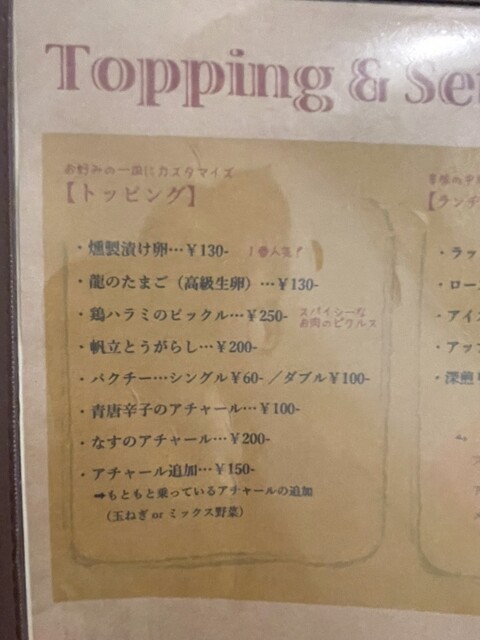 Topping & Se
お好みの一皿にカスタマイズ
【トッピング】
・燻製漬け卵…¥130- 1番人気!
・龍のたまご(高級生卵)…¥130-
・鶏ハラミのピックル…¥250- スパイシーな
お肉のピクルス
・帆立とうがらし…¥200-
・パクチー…シングル¥60-/ダブル¥100-
・青唐辛子のアチャール…¥100-
・なすのアチャール…¥200-
・アチャール追加…¥150-
➡もともと乗っているアチャールの追加
(玉ねぎ or ミックス野菜)
【ランチ
・ラッ
・ロー
・アイ
・アッ
・深煎り